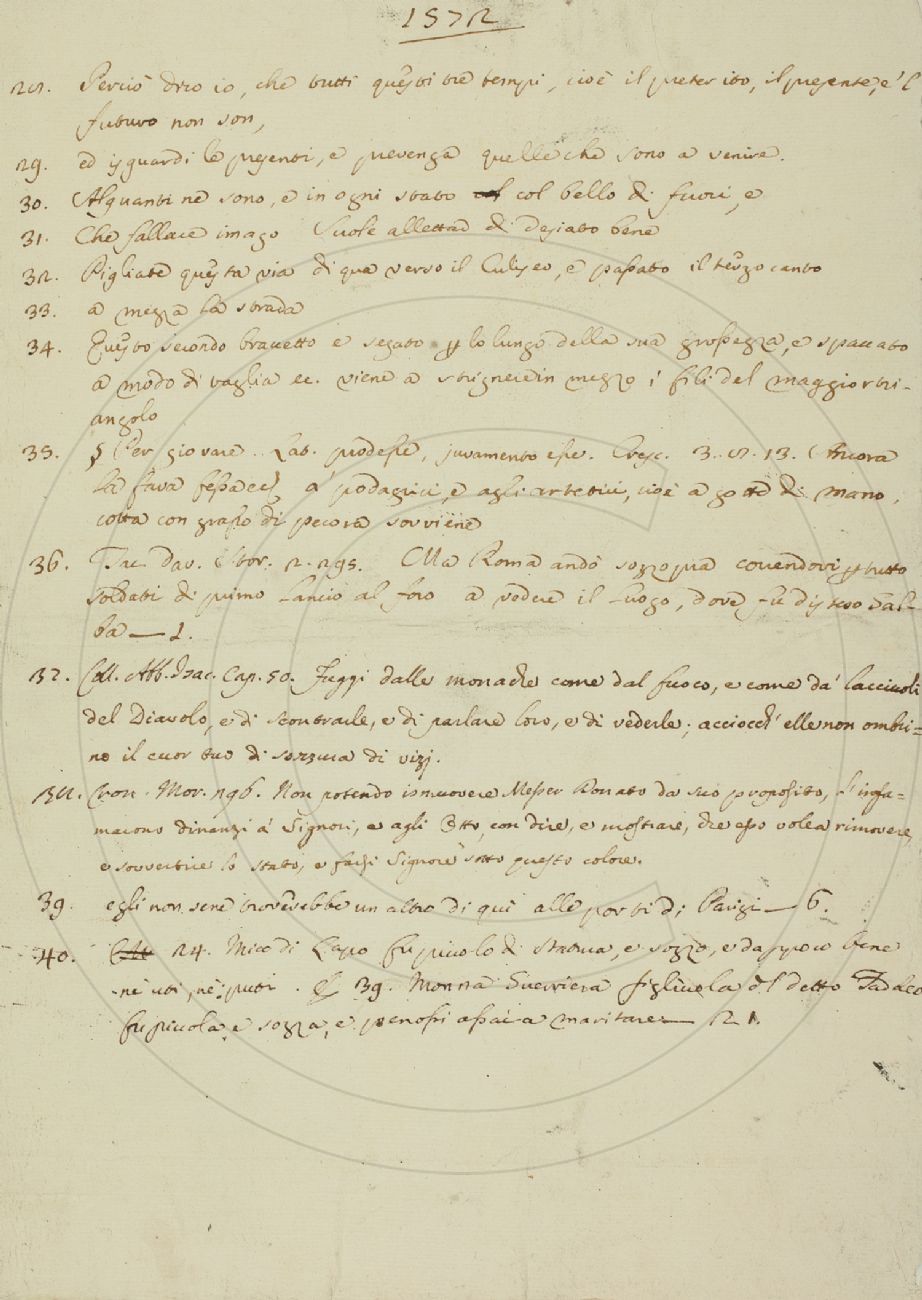 1572
28. Perciò dico io, che tutti questi tre tempi, cioè il preterito, il presente, e 'l
futuro non son,
29. ed isguardi le presenti, e prevenga quelle che sono a venire.
30. Alquanti ne sono, e in ogni stato col bello di fuori, e
31. Che fallace imago Suole allettar di desiato bene
32. Pigliate questa via di qua verso il Culiseo, e passato il terzo canto
33. a mezza la strada
34. Questo secondo bracetto è segato p lo lungo della sua grossezza, e spaccato
a modo di vaglia ec. viene a strignere in mezzo i fili del maggior tri-
angolo
35. § Per giovare. Lat. prodesse, juvamento esse. Cresc. 3. 8. 13. (Ancora
la fava fessa ec) a' podagrici, e agli artetici, cioè a gotte di mano,
cotta con grasso di pecora sovviene
36. Tac. Dav. Stor. 2. 295. Ma Roma andò sozzopra correndovi p tutto
soldati di primo lancio al foro a vedere il luogo, dove fu disteso Gal-
ba — 1.
37. Coll. Abb. Isac. Cap. 50. Fuggi dalle monache come dal fuoco, e come da' lacciuoli
del Diavolo, e di scontrarle, e di parlare loro, e di vederle; acciocch' elle non ombri=
no il cuor tuo di sozzura di vizj.
38. Cron. Mor. 296. Non potendo ismuovere Messer Donato da suo proposito, l' infa=
marono dinanzi a' Signori, e agli Otto, con dire, e mostrare, che esso volea rimovere,
e sovvertire lo stato, e farsi Signore sotto questo colore.
39. egli non sene troverebbe un altro di quì alle porti di Parigi — 6.
40. 24. Mico di Lapo fu piccolo di statura, e sozzo, e dappoco bene
nè uti, nè puti. E 39. Monna Guerriera figliuola del detto Taddeo
fu piccola, e sozza, e penossi assai a maritare — 21.